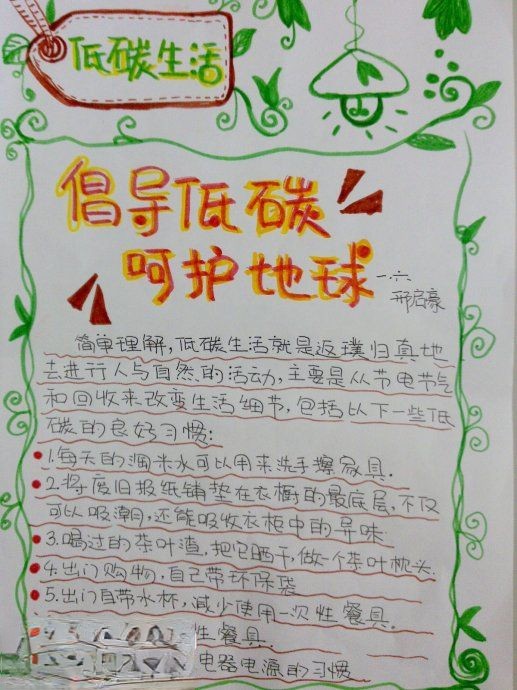 低碳生活
倡导低碳
呵护地球
一.六
邢启豪
简单理解,低碳生活就是返璞归真地
去进行人与自然的活动,主要是从节电节气
和回收来改变生活细节,包括以下一些低
碳的良好习惯:
1.每天的淘米水可以用来洗手擦家具.
2.将废旧报纸铺垫在衣橱的最底层,不仅
可以吸潮,还能吸收衣柜中的异味.
3.喝过的茶叶渣,把它晒干,做一个茶叶枕头.
4.出门购物,自己带环保袋
5.出门自带水杯,减少使用一次性餐具.
性餐具.
电器电源的习惯